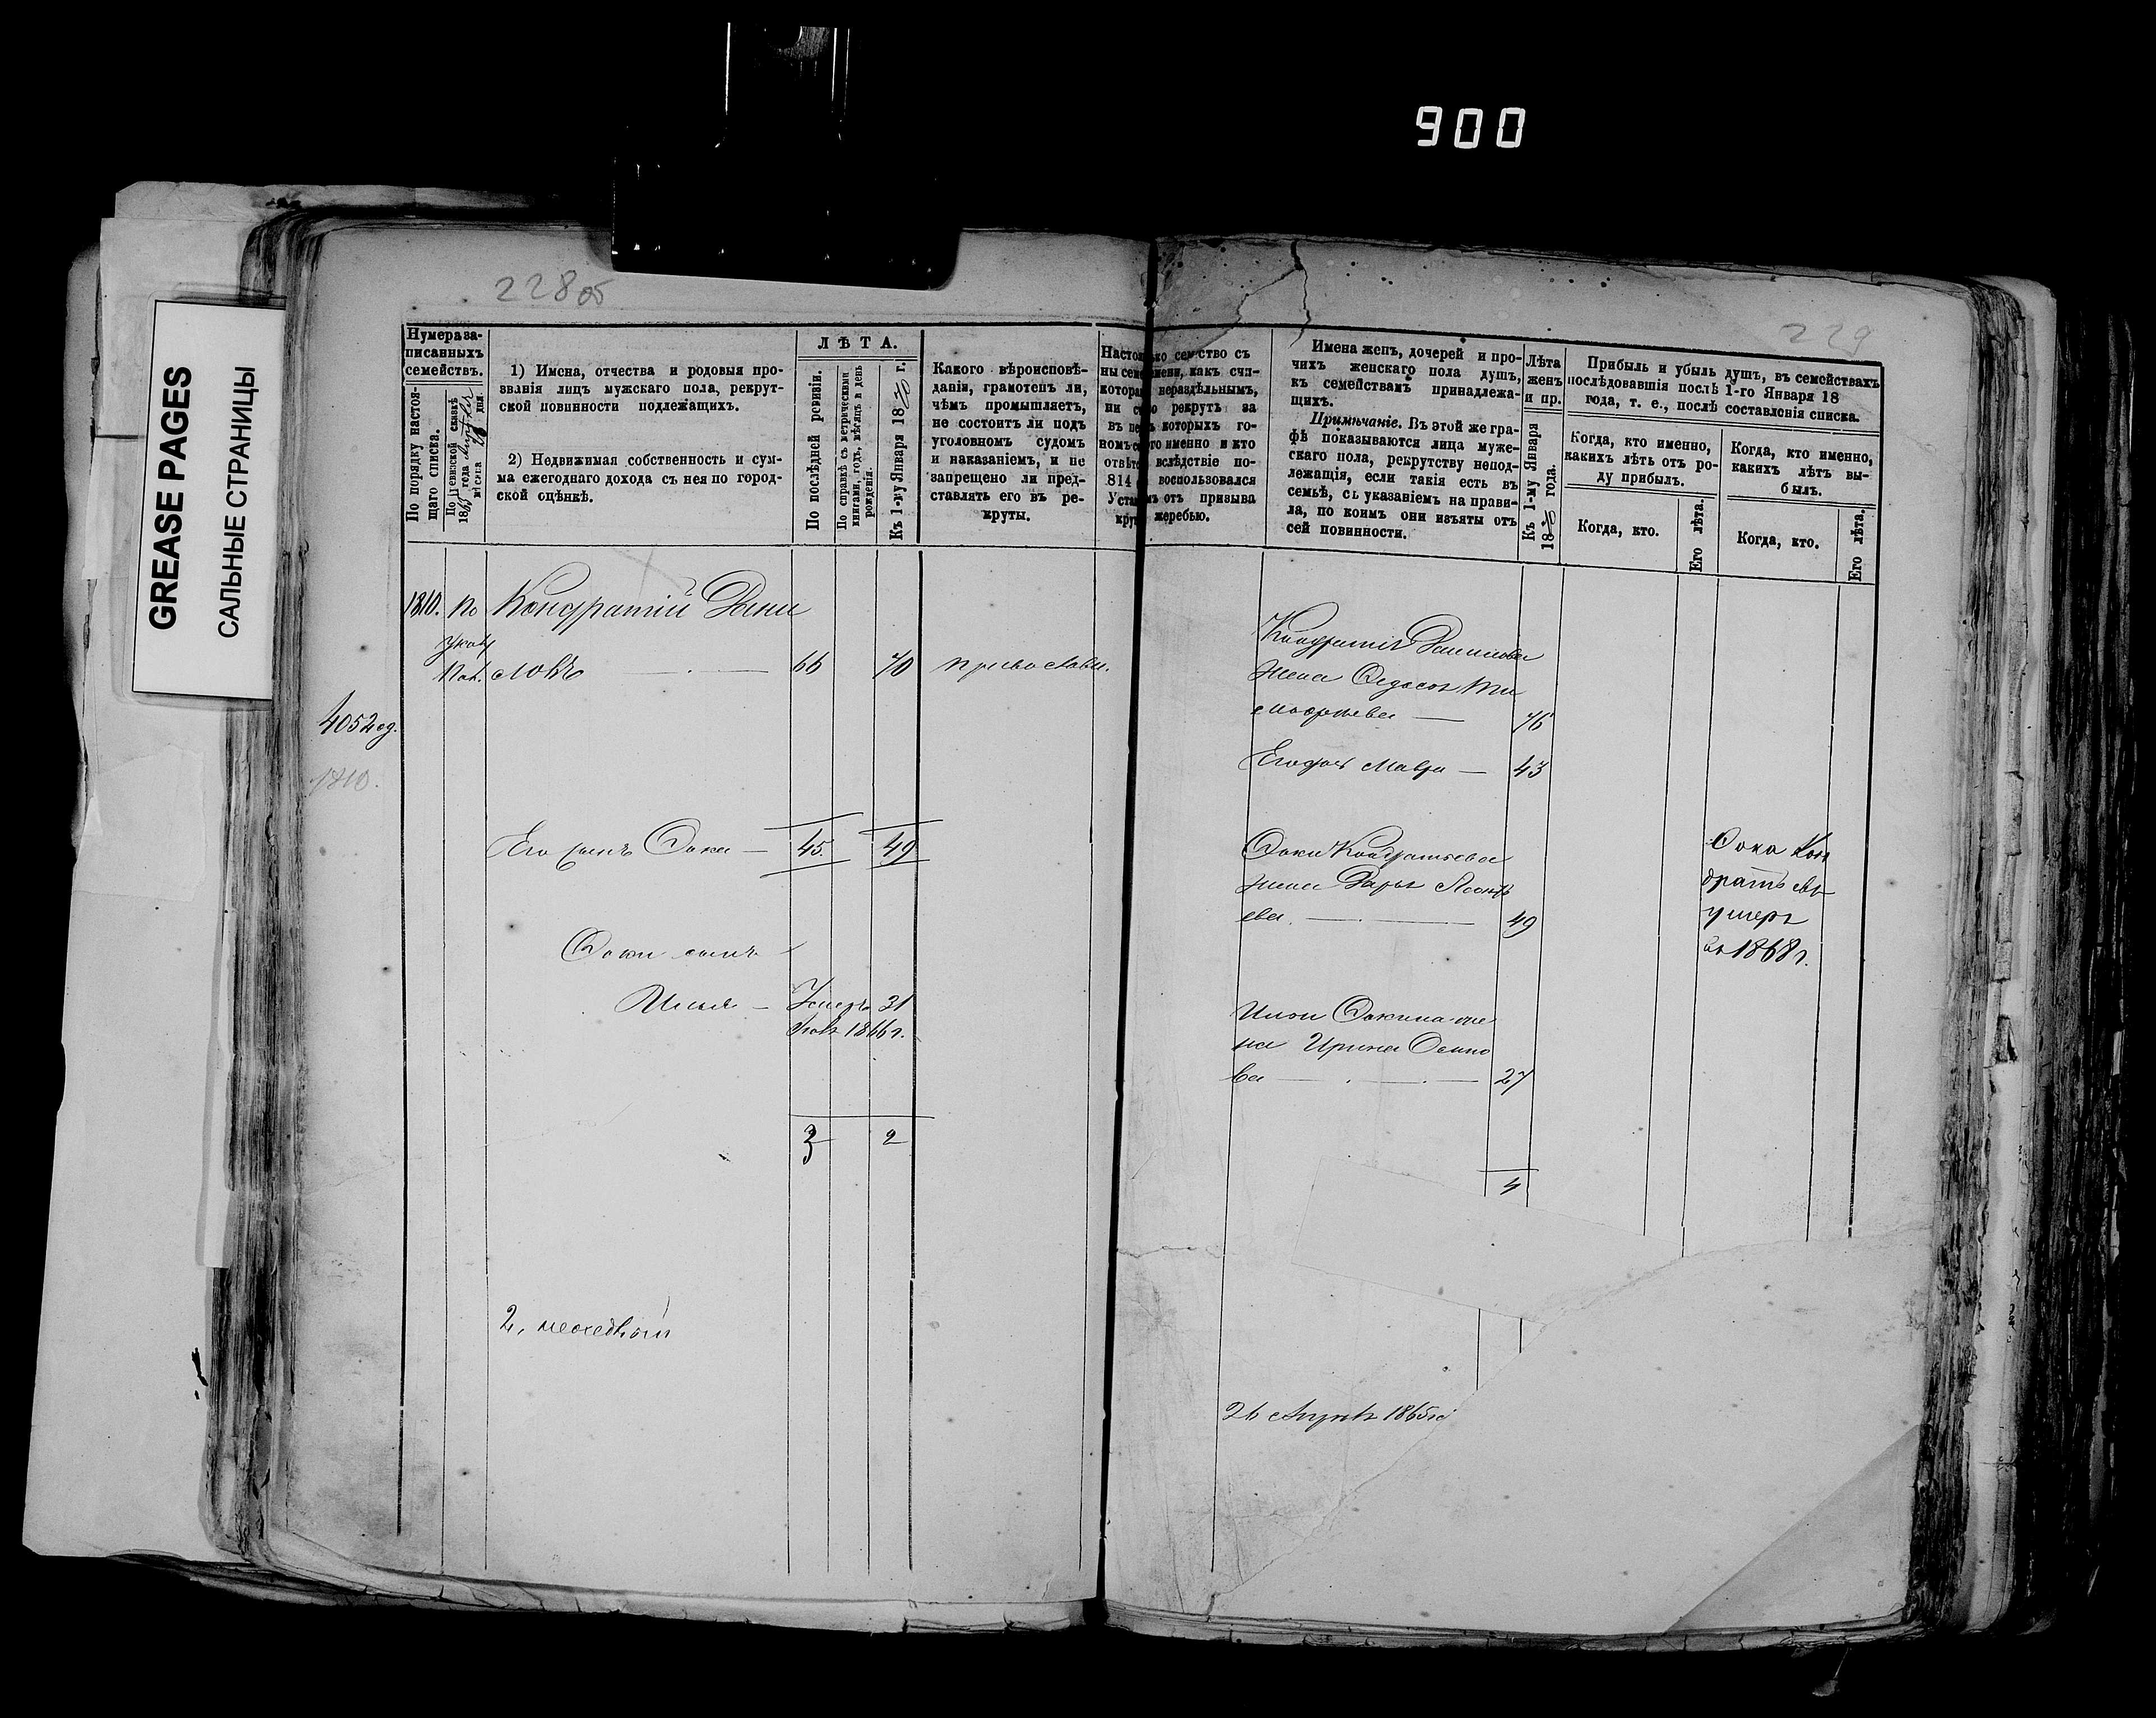 900
GREASE PAGES
САЛЬНЫЕ СТРАНИЦЫ
228 об
229
Нумера за-
писанныхъ
семействъ.
По порядку настоя-
щаго списка.
По ревизской сказкѣ
года
мѣсяца 20 дня.
1) Имена, отчества и родовыя про-
званія лицъ мужскаго пола, рекрут-
ской повинности подлежащихъ.
2) Недвижимая собственность и сум-
ма ежегоднаго дохода съ нея по город-
ской оцѣнкѣ.
ЛѢТА.
По послѣдней ревизіи.
По справкѣ съ метрическими
книгами, годъ, мѣсяцъ и день
рожденія.
Къ 1-му Января 1870 г.
Какого вѣроисповѣ-
данія, грамотенъ ли,
чѣмъ промышляетъ,
не состоитъ ли подъ
уголовномъ судомъ
и наказаніемъ, и не
запрещено ли пред-
ставлять его въ ре-
круты.
семейство съ
какъ счи-
нераздѣльнымъ,
рекрутъ за
которыхъ го-
именно и кто
вслѣдствіе по-
814 воспользовался
отъ призыва
жеребью.
Имена женъ, дочерей и про-
чихъ женскаго пола душъ,
къ семействамъ принадлежа-
щихъ.
Примѣчаніе. Въ этой же гра-
фѣ показываются лица муже-
скаго пола, рекрутству непод-
лежащія, если такія есть въ
семьѣ, съ указаніемъ на прави-
ла, по коимъ они изъяты отъ
сей повинности.
Лѣта
женъ
и пр.
Къ 1-му Января
1870 года.
Прибыль и убыль душъ, въ семействахъ
послѣдовавшія послѣ 1-го Января 18
года, т. е., послѣ составленія списка.
Когда, кто именно,
какихъ лѣтъ отъ ро-
ду прибылъ.
Когда, кто именно,
какихъ лѣтъ вы-
былъ.
Когда, кто.
Его лѣта.
Когда, кто.
Его лѣта.
1810. По Кондратій Дани
указу
словъ — 66 70 православн.
4052 ед.
1810.
Его сынъ Фока — 45. 49
Фоки сынъ
Илья — Умеръ 31
1866 г.
3 2
2,
Кондратія Данилова
жена Федосья Ти
мофеева — 76
Его дочь Мавра — 43
Фоки Кондратьева
жена Дарья Леонть
ева — 49
Ильи Фокина же
на Ирина Осипо
ва — 27
4
Фока Кон
дратьевъ
умеръ
въ 1868 г.
26 1865